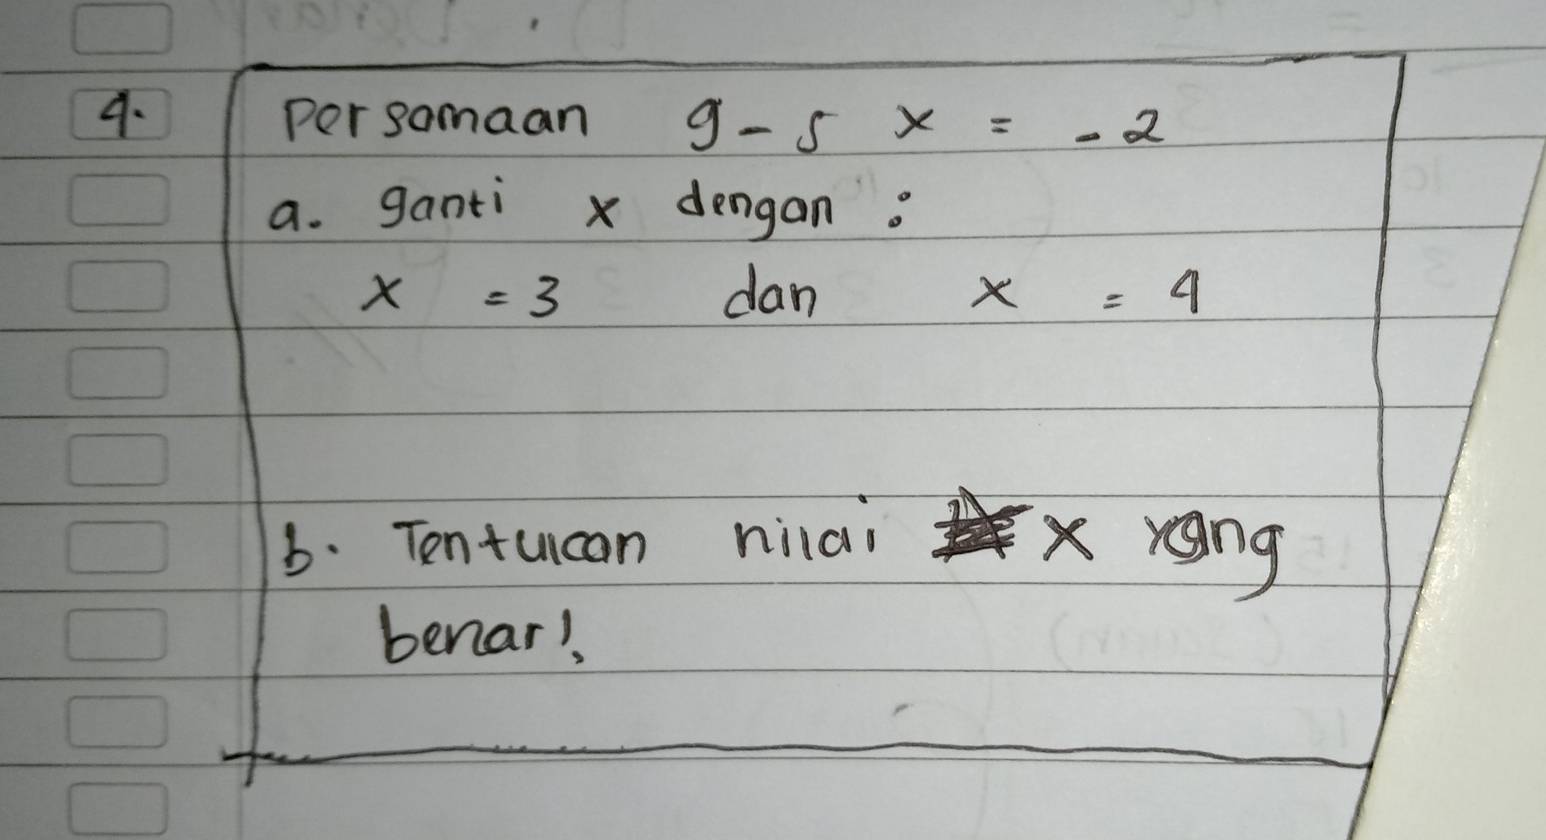 4. Persamaan 9 - 5 x = - 2
a. ganti x dengan :
x = 3 dan x = 4
b. Tentukan nilai x yang
benar!